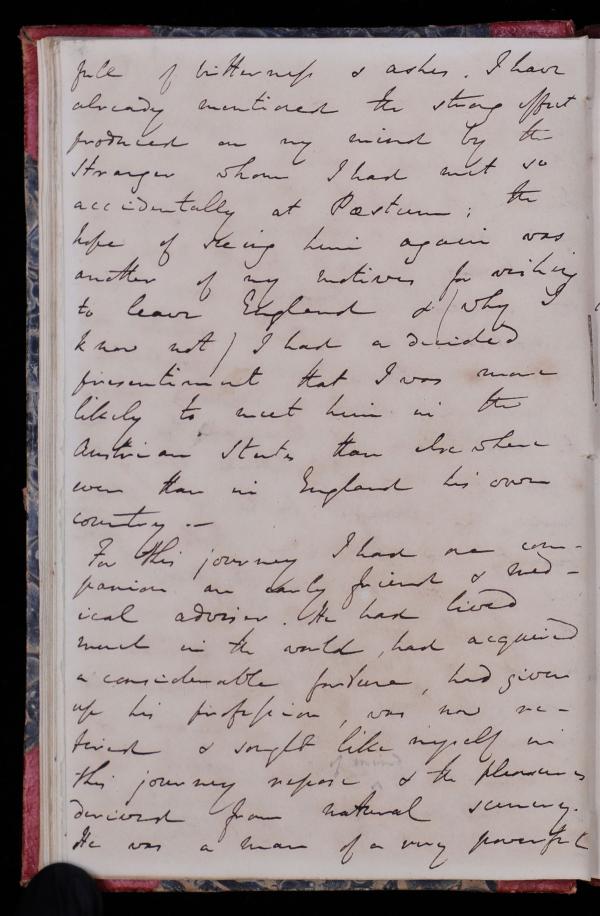 full of bitterness & ashes. I have
already mentioned the strong effect
produced on my mind by the
Stranger whom I had met so
accidentally at Pæstum; the
hope of seeing him again was
another of my motives for wishing
to leave England & (why I
know not) I had a decided
presentiment that I was more
likely to meet him in the
Austrian States than elsewhere
even than in England his own
country. –
For this journey I had one com-
panion an early friend & med-
ical adviser. He had lived
much in the world, had acquired
a considerable fortune, had given
up his profession, was now re-
tired & sought like myself in
of mind
this journey repose & the pleasures
derived from natural scenery.
He was a man of a very powerful